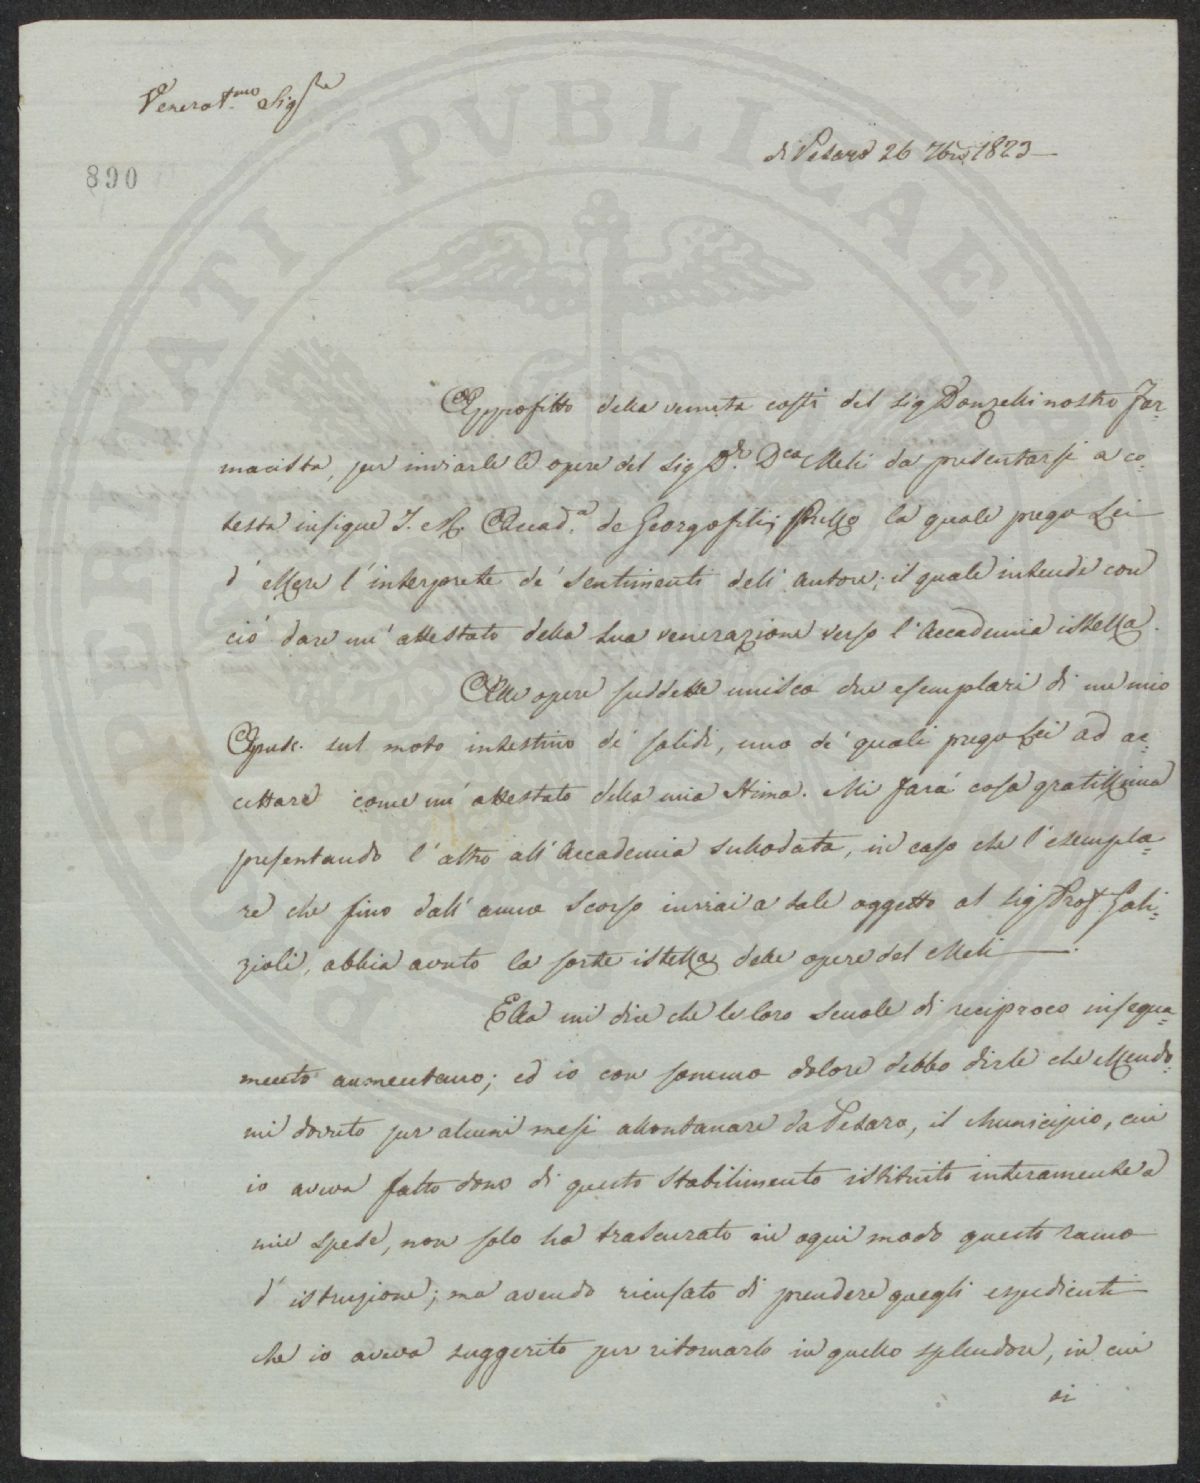 Venerat.mo Sigre
di Pesaro 26 7bre 1823
890
Approfitto della venuta costì del Sig Donzelli nostro Far-
macista, per inviarle le opere del Sig Dr. Dco Meli da presentarsi a co-
testa insigne I. e R. Accad.a de Georgofili; presso la quale prego Lei
d'essere l'interprete de' sentimenti dell'autore; il quale intende con
ciò dare un'attestato della sua venerazione verso l'Accademia istessa.
Alle opere suddette unisco due esemplari di un mio
Opusc. sul moto intestino de' solidi, uno de' quali prego Lei ad ac-
cettare come un'attestato della mia stima. Mi farà cosa gratissima
presentando l'altro all'Accademia sulodata, in caso che l'esempla-
re che fino dall'anno scorso inviai a tale oggetto al Sig Prof. Gali-
zioli, abbia avuto la sorte istessa delle opere del Meli.
Ella mi dice che le loro Scuole di reciproco insegna-
mento aumentano; ed io con sommo dolore debbo dirle che essendo-
mi dovuto per alcuni mesi allontanare da Pesaro, il Municipio, cui
io aveva fatto dono di questo stabilimento istituito interamente a
mie spese, non solo ha trascurato in ogni modo questo ramo
d'istruzione; ma avendo ricusato di prendere quegli espedienti
che io aveva suggerito per ritornarlo in quello splendore, in cui
si